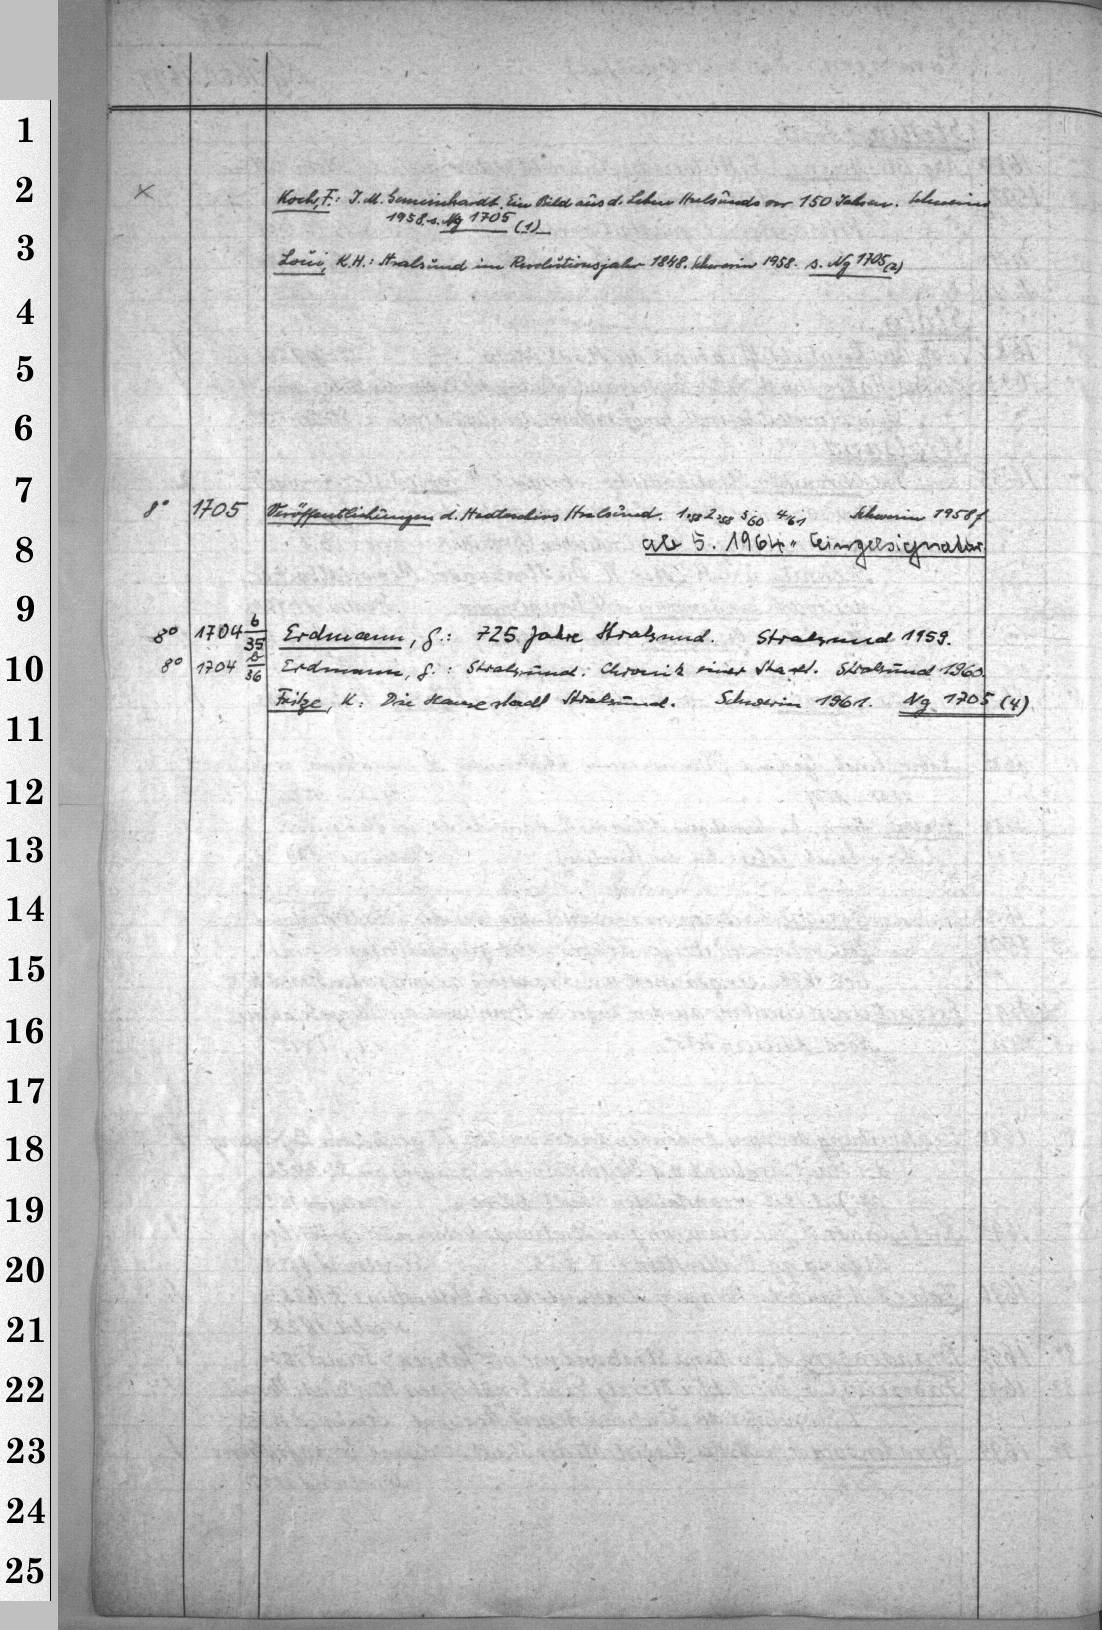 1
2
× Koch, F.: J. M. Gemeinhardt. Ein Bild aus d. Leben Stralsunds vor 150 Jahren. Schwerin
1958. s. Ng 1705 (1)
3
Loui, K.H.: Stralsund im Revolutionsjahr 1848. Schwerin 1958. s. Ng 1705 (2)
4
5
6
7
8° 1705 Veröffentlichungen d. Stadtarchivs Stralsund. 1.58 2.58 3/60 4/61 Schwerin 1958 f
8
ab 5. 1964 " Einzelsignatur
9
8° 1704 6/35 Erdmann, G.: 725 Jahre Stralsund. Stralsund 1959.
10
8° 1704 /36 Erdmann, G.: Stralsund. Chronik einer Stadt. Stralsund 1960.
Fritze, K: Die Hansestadt Stralsund. Schwerin 1961. Ng 1705 (4)
11
12
13
14
15
16
17
18
19
20
21
22
23
24
25